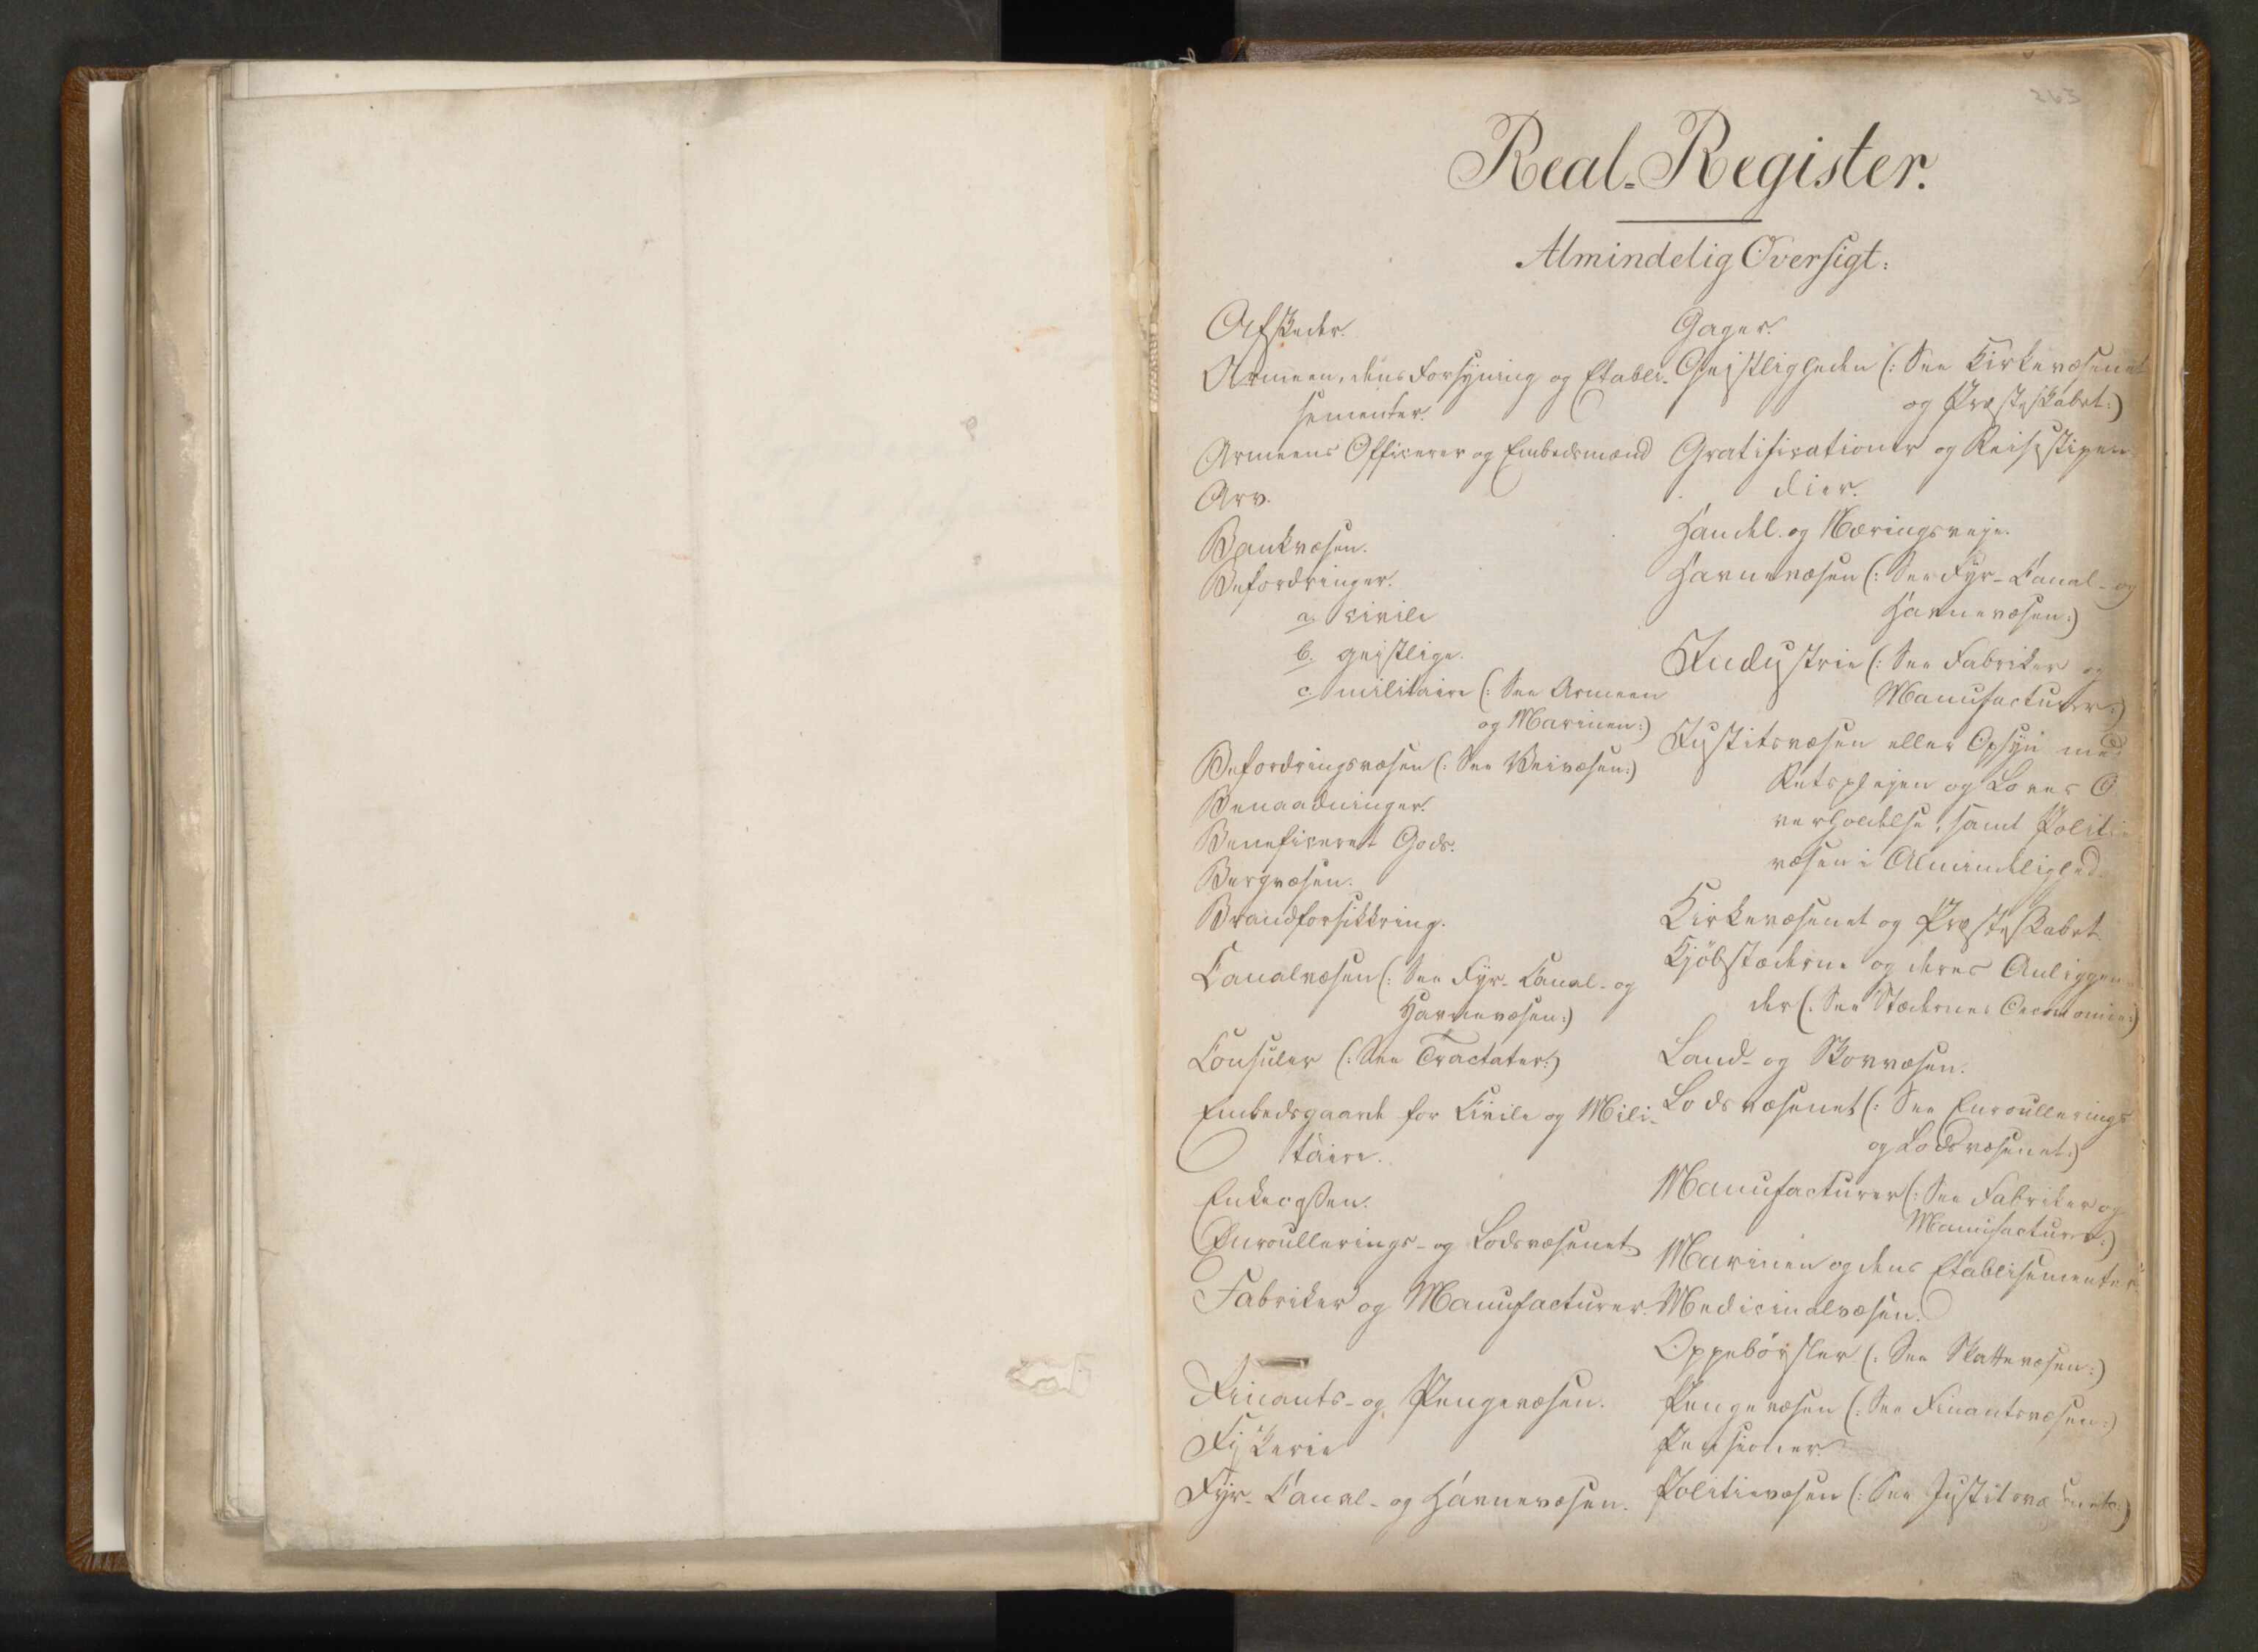 263
Real-Register.
Almindelig Oversigt:
Afskeder.
Armeen, dens Forsyning og Etabli-
sementer.
Armeens Officerer og Embedsmænd
Arv.
Bankvæsen.
Befordringer.
a. civile
b. geistlige.
c. militaire (: See Armeen
og Marinen:)
Befordringsvæsen (: See Veivæsen:)
Benaadninger.
Beneficeret Gods.
Bergvæsen.
Brandforsikkring.
Canalvæsen (: See Fyr- Canal- og
Havnevæsen:)
Consuler (: See Tractater:)
Embedsgaarde for Civile og Mili-
taire.
Enkecassen.
Enroullerings- og Lodsvæsenet
Fabriker og Manufacturer.
Finants- og Pengevæsen.
Fiskerie
Fyr- Canal- og Havnevæsen.
Gager.
Geistligheden (: See Kirkevæsenet
og Præsteskabet:)
Gratificationer og Reisestipen
dier.
Handel og Næringsveje.
Havnevæsen (: See Fyr- Canal- og
Havnevæsen:)
Industrie (: See Fabriker og
Manufacturer:)
Justitsvæsen eller Opsyn med
Retsplejen og Loves O
verholdelse, samt Politie
væsen i Almindelighed.
Kirkevæsenet og Præsteskabet
Kjöbstæderne og deres Anliggen-
der (: See Stædernes Oeconomie:)
Land- og Skovvæsen.
Lodsvæsenet (: See Enroullerings
og Lodsvæsenet:)
Manufacturer (: See Fabriker og
Manufacturer:)
Marinen og dens Etablisementer
Medicinalvæsen.
Oppebörsler (: See Skattevæsen:)
Pengevæsen (: See Finantsvæsen:)
Pensioner.
Politievæsen (: See Justitsvæsenet:)